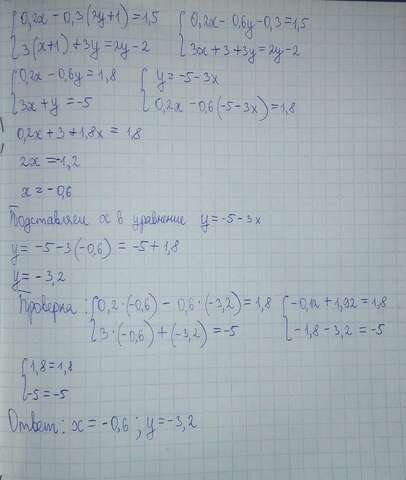 {0,2x - 0,3(2y+1) = 1,5 {0,2x - 0,6y - 0,3 = 1,5
{3(x+1) + 3y = 2y - 2 {3x + 3 + 3y = 2y - 2
{0,2x - 0,6y = 1,8 {y = -5 - 3x
{3x + y = -5 {0,2x - 0,6(-5 - 3x) = 1,8
0,2x + 3 + 1,8x = 1,8
2x = -1,2
x = -0,6
Подставляем x в уравнение y = -5 - 3x
y = -5 - 3(-0,6) = -5 + 1,8
y = -3,2
Проверка: {0,2·(-0,6) - 0,6·(-3,2) = 1,8 {-0,12 + 1,92 = 1,8
{3·(-0,6) + (-3,2) = -5 {-1,8 - 3,2 = -5
{1,8 = 1,8
{-5 = -5
Ответ: x = -0,6; y = -3,2